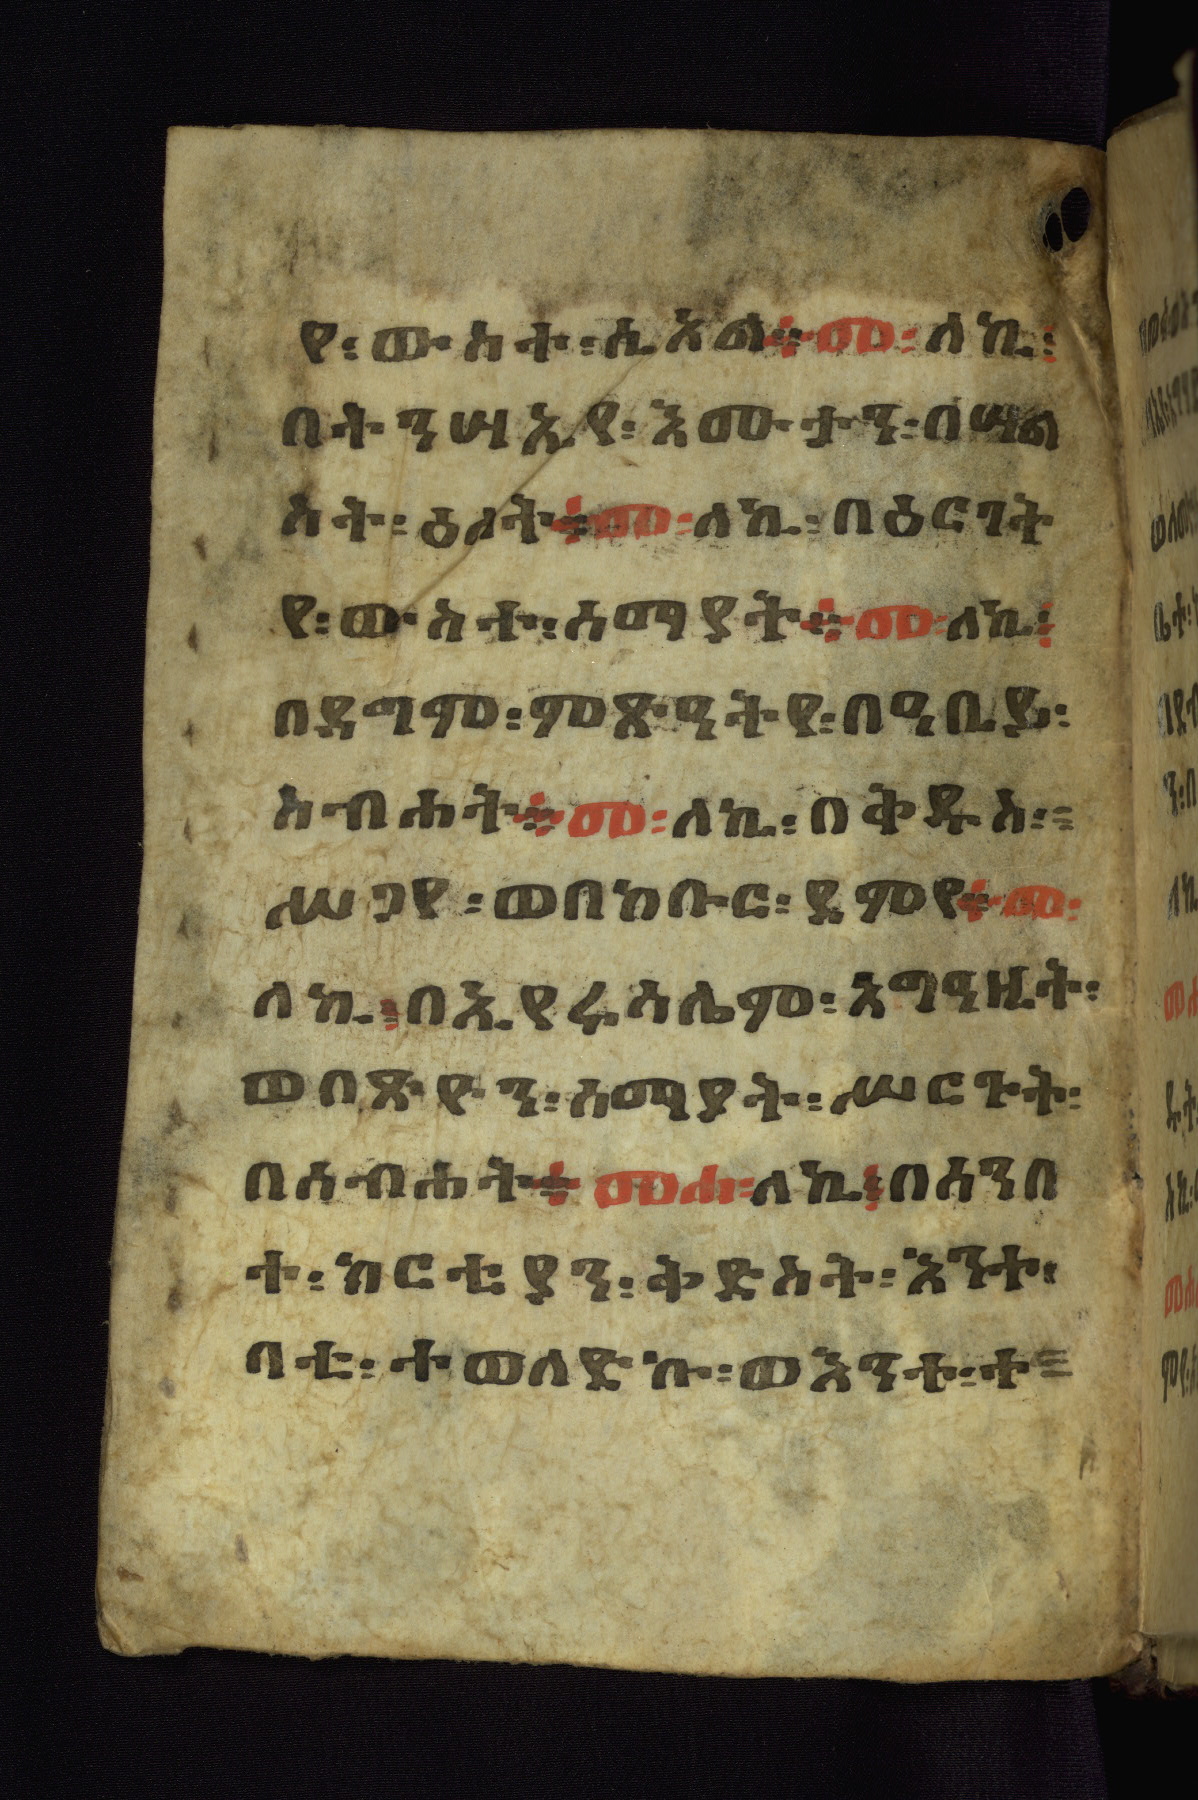 ዩ፡ ውስተ፡ ሲኦል፨ መ፡ ለኪ፡
በትንሣኤዩ፡ እሙታን፡ በሣል
ስት፡ ዕለት፨ መ፡ ለኪ፡ በዕርገት
ዩ፡ ውስተ፡ ሰማያት፨ መ፡ ለኪ፡
በዳግም፡ ምጽዓትዩ፡ በዓቢይ፡
ስብሐት፨ መ፡ ለኪ፡ በቅዱስ፡
ሥጋዩ፡ ወበክቡር፡ ደምዩ፨ መ፡
ለኪ፡ በኢየሩሳሌም፡ እግዓዚት፡
ወበጽዮን፡ ሰማያት፡ ሥርጉት፡
በስብሐት፨ መሐ፡ ለኪ፡ በሰንበ
ተ፡ ክርቲያን፡ ቅድስት፡ እንተ፡
በቲ፡ ተወለድኩ፡ ወእንተ፡ ተ